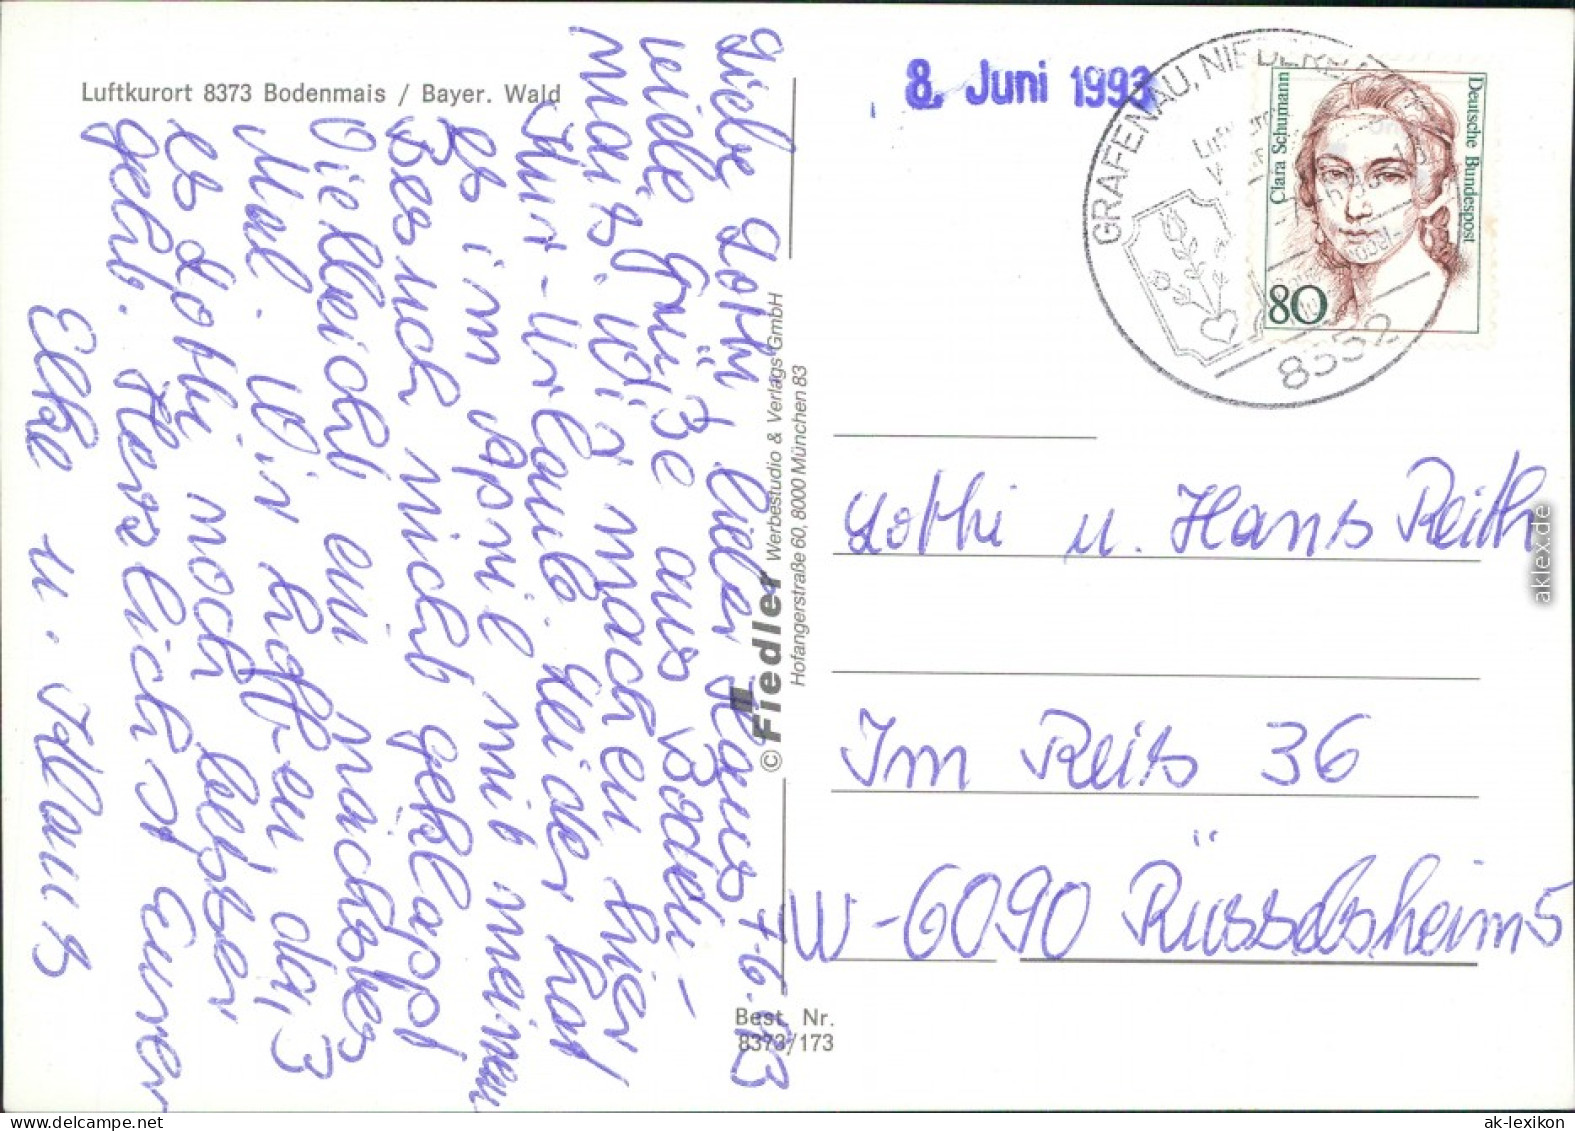 Luftkurort 8373 Bodenmais / Bayer. Wald
Liebe Lothi, lieber Hans 7.6.93
viele Grüße aus Boden-
mais. Wir machen hier
Kur-Urlaub. Leider hat
es im April mit meinem
Besuch nicht geklappt
Vielleicht ein nächstes
Mal. Wir hoffen, daß
es Lothi noch besser
geht. Herzlichst Eurer
Elke u. Klaus
© Fiedler Werbestudio & Verlags GmbH
Hofangerstraße 60, 8000 München 83
Best. Nr.
8373/173
8. Juni 1993
GRAFENAU, NIEDERB
8352
Clara Schumann
Deutsche Bundespost
80
Lothi u. Hans Reith
Im Reis 36
W-6090 Rüsselsheim 5
aklex.de
ak-lexikon.de